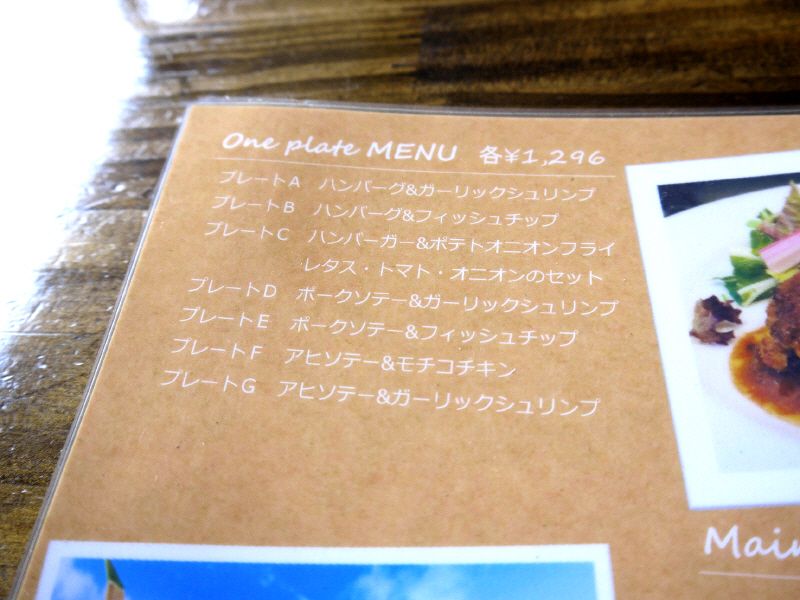 One plate MENU 各¥1,296
プレートA ハンバーグ&ガーリックシュリンプ
プレートB ハンバーグ&フィッシュチップ
プレートC ハンバーガー&ポテトオニオンフライ
レタス・トマト・オニオンのセット
プレートD ポークソテー&ガーリックシュリンプ
プレートE ポークソテー&フィッシュチップ
プレートF アヒソテー&モチコチキン
プレートG アヒソテー&ガーリックシュリンプ
Main